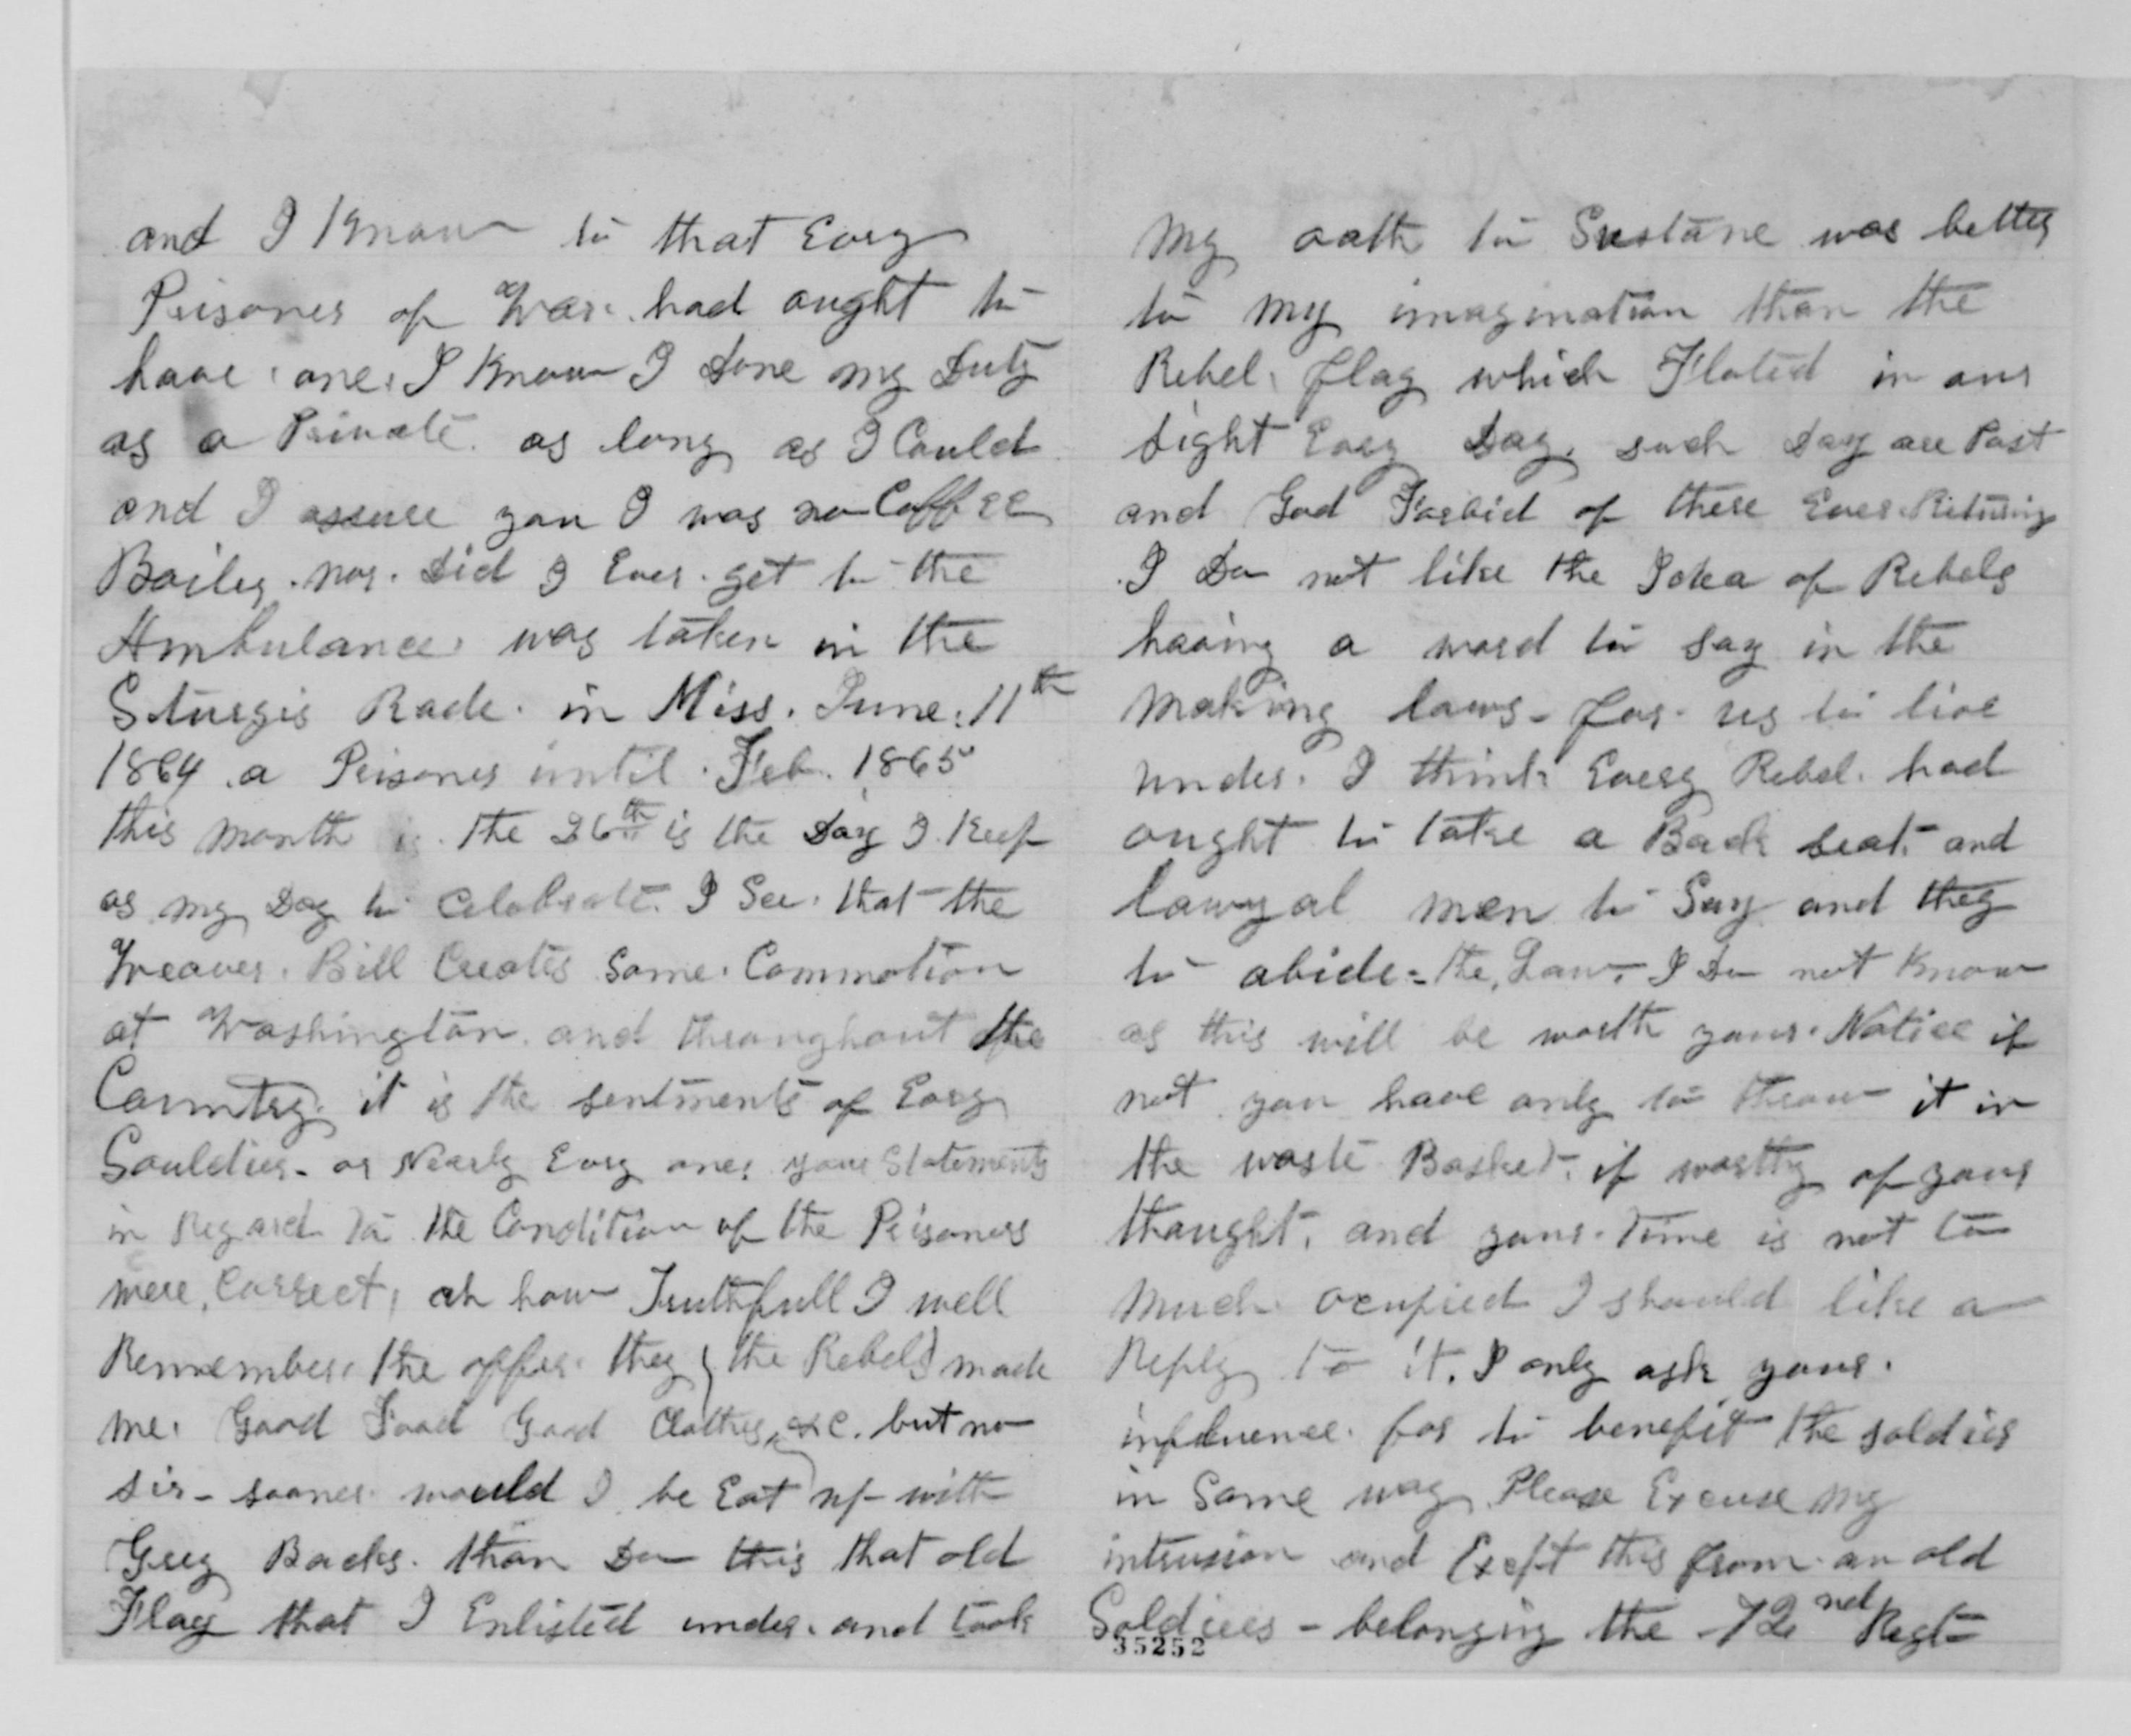 and I Know to that Evry
Prisoner of War. had ought to
have one. I Know I Done my Duty
as a Private. as long as I Could
and I assure you I was no Coffee
Boiler. nor. Did I Ever. get to the
Ambulance. was taken in the
Sturgis Rade. in Miss. June. 11th
1864 a Prisoner until. Feb. 1865
this month is. the 26th is the Day I Keep
as my Day to Celebrate. I See. that the
Weaver. Bill Creates Some. Commotion
at Washington. and throughout the
Country. it is the sentments of Evry
Souldier - or Nearly Evry one. your Statements
in Regard to the Condition of the Prisoners
were. Correct, oh how Truthfull I well
Remember. the offer. they (the Rebels) made
me. Good Food Good Clothes, &c. but no
sir - sooner. would I be Eat up with
Grey Backs. than Do this that old
Flag that I Enlisted under. and took
My oath to Sustane was better
to my imagination than the
Rebel. flag which Floted in our
sight Evry Day. such Day are Past
and God Forbid of there Ever. Returing
. I Do not like the Idea of Rebels
having a word to say in the
making laws - for. us to live
under. I think Every Rebel. had
ought to take a Back seat. and
lawyal men to Say and they
to abide = the, Law. I Do not Know
as this will be worth your. Notice if
not you have only to throw it in
the waste Basket. if worthy of your
thought. and your. Time is not to
much ocupied I should like a
Reply to it. I only ask your.
influence. for to benefit the soldier
in Some way. Please Excuse my
intrusion and Exept this from an old
Soldiers - belonging the 72nd Regt
35252